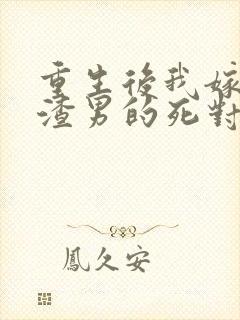 重生後我嫁
渣男的死對
鳳久安